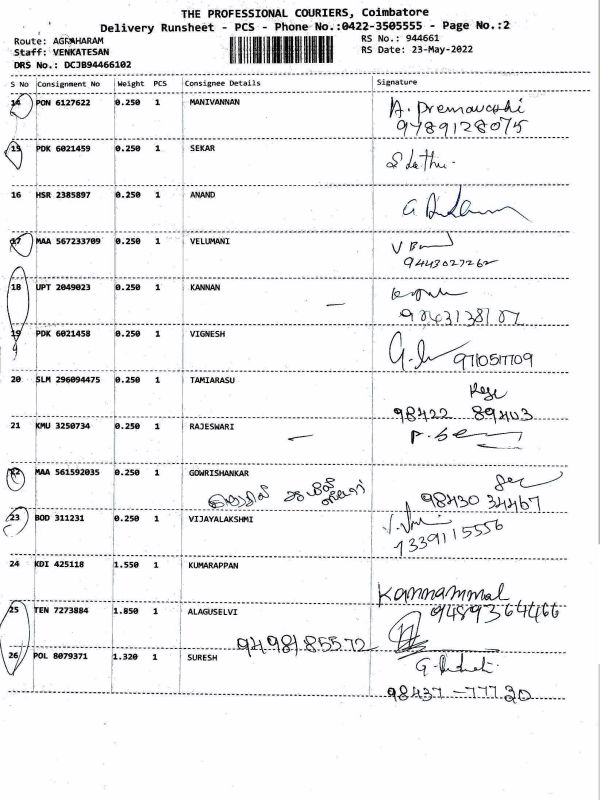 THE PROFESSIONAL COURIERS, Coimbatore
Delivery Runsheet - PCS - Phone No.:0422-3505555 - Page No.:2
Route: AGRAHARAM RS No.: 944661
Staff: VENKATESAN RS Date: 23-May-2022
DRS No.: DCJB94466102
S No Consignment No Weight PCS Consignee Details Signature
14 PON 6127622 0.250 1 MANIVANNAN A. Premavathi
9789128075
15 PDK 6021459 0.250 1 SEKAR
16 HSR 2385897 0.250 1 ANAND
17 MAA 567233709 0.250 1 VELUMANI
9443027262
18 UPT 2049023 0.250 1 KANNAN
19 PDK 6021458 0.250 1 VIGNESH
9710517709
20 SLM 296094475 0.250 1 TAMIARASU
98422 89403
21 KMU 3250734 0.250 1 RAJESWARI
22 MAA 561592035 0.250 1 GOWRISHANKAR
98430 34467
23 BOD 311231 0.250 1 VIJAYALAKSHMI
7339115556
24 KDI 425118 1.550 1 KUMARAPPAN
Kannammal
9489364466
25 TEN 7273884 1.850 1 ALAGUSELVI
9498185572
26 POL 8079371 1.320 1 SURESH
98437-77720